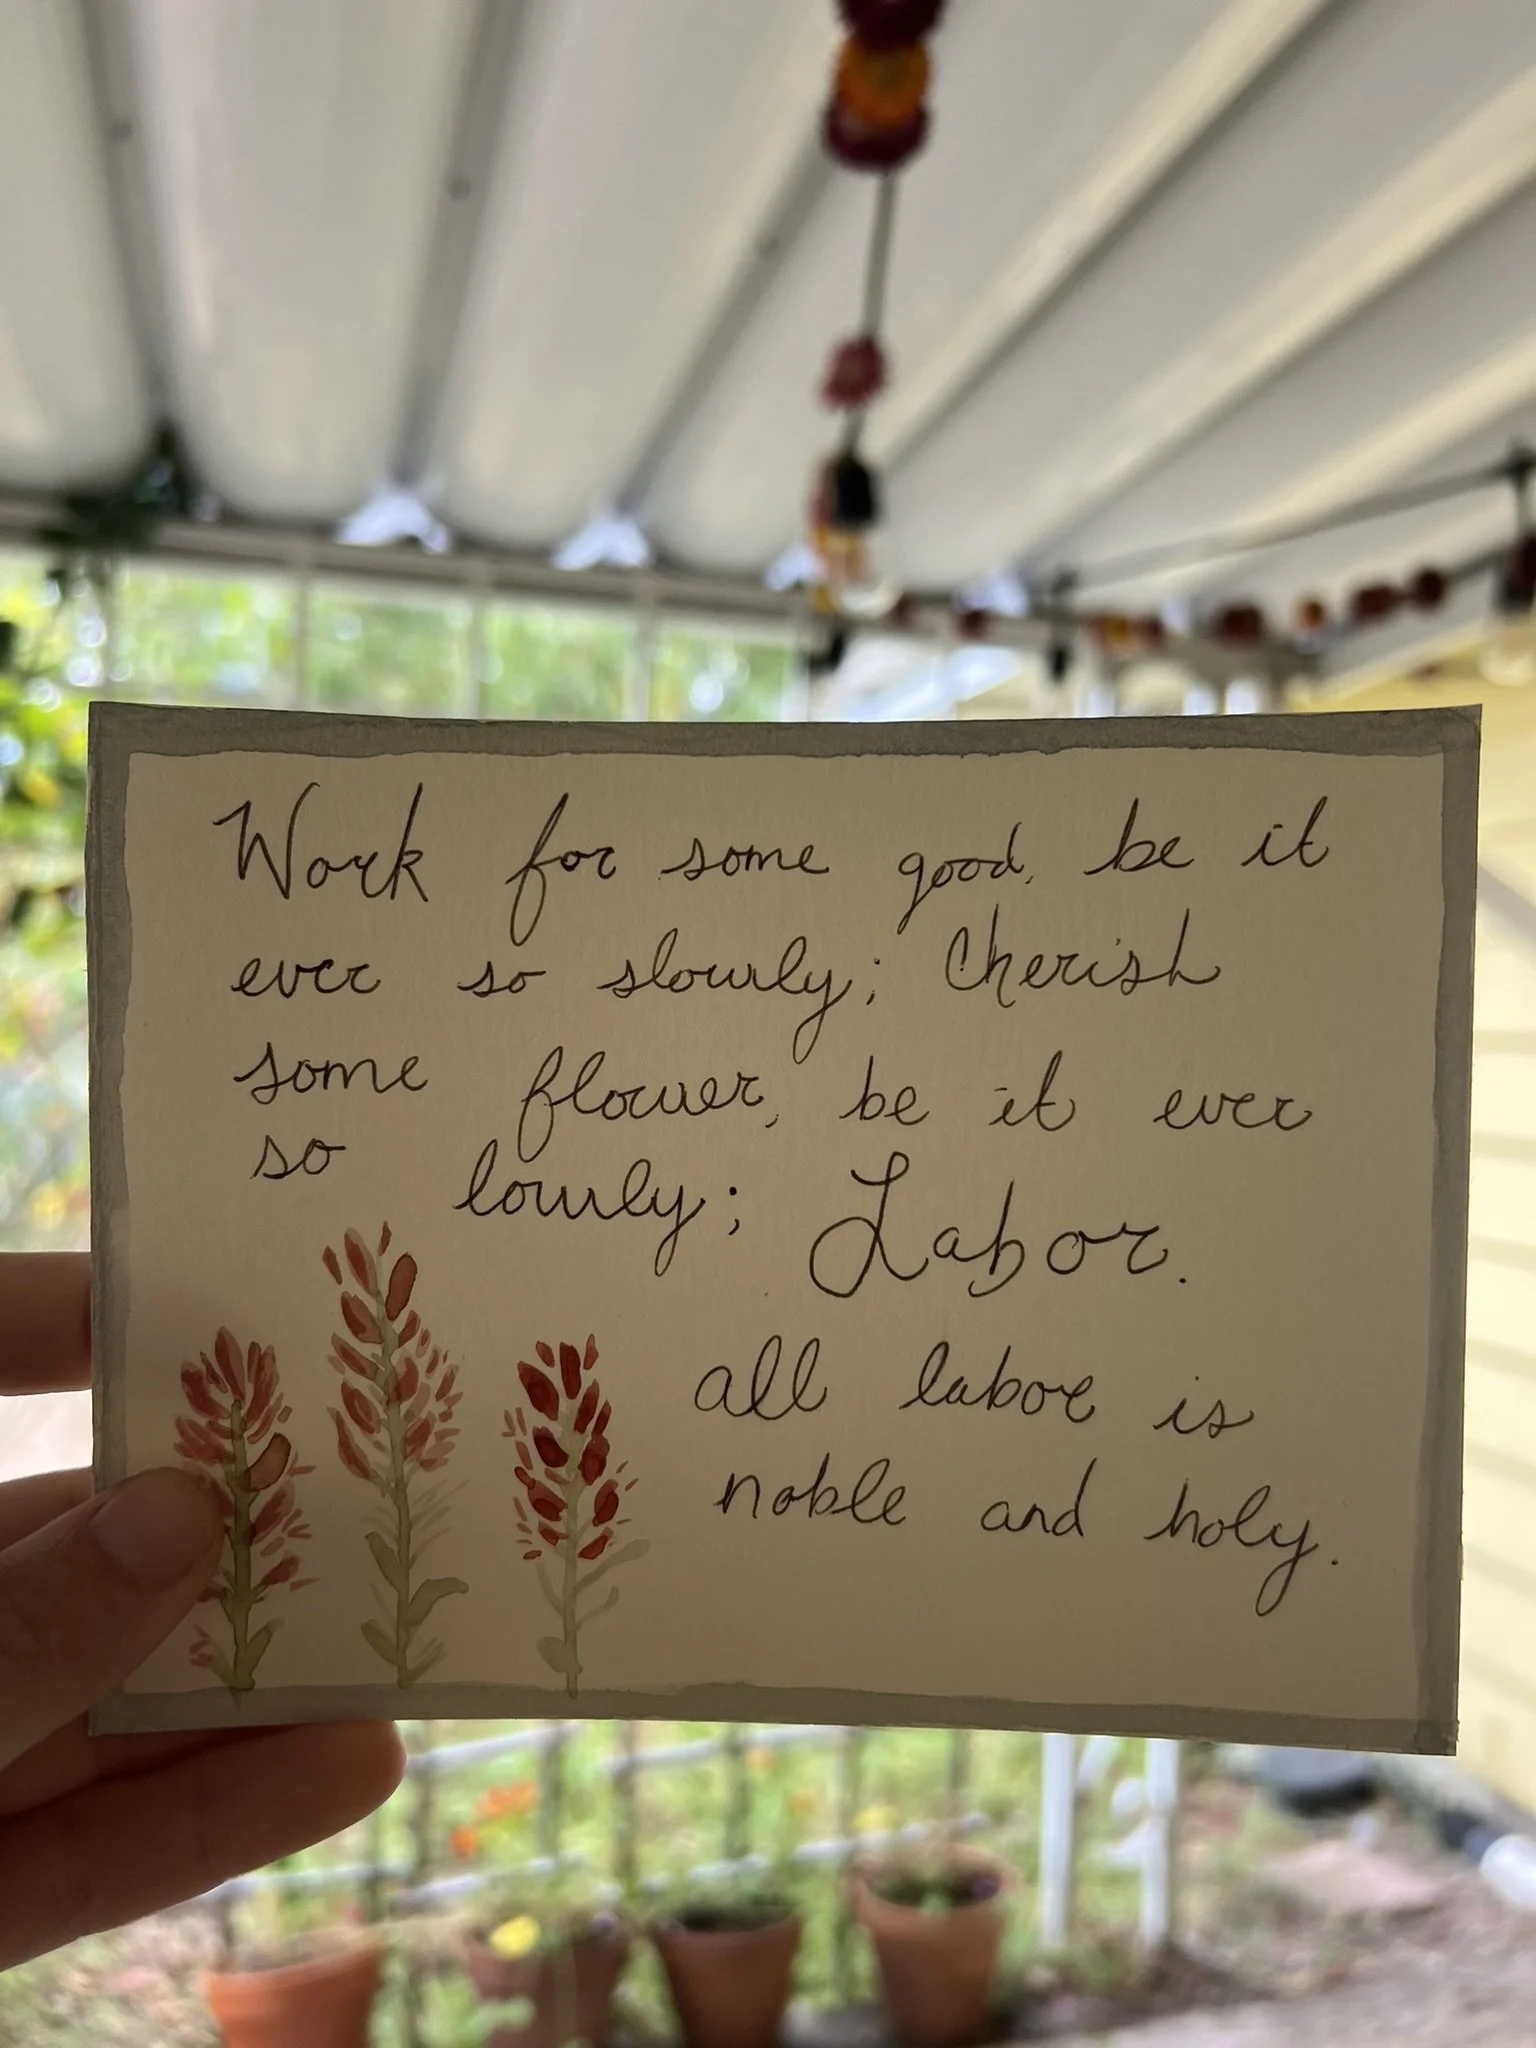 Work for some good, be it
ever so slowly; Cherish
some flower, be it ever
so lowly; Labor.
all labor is
noble and holy.